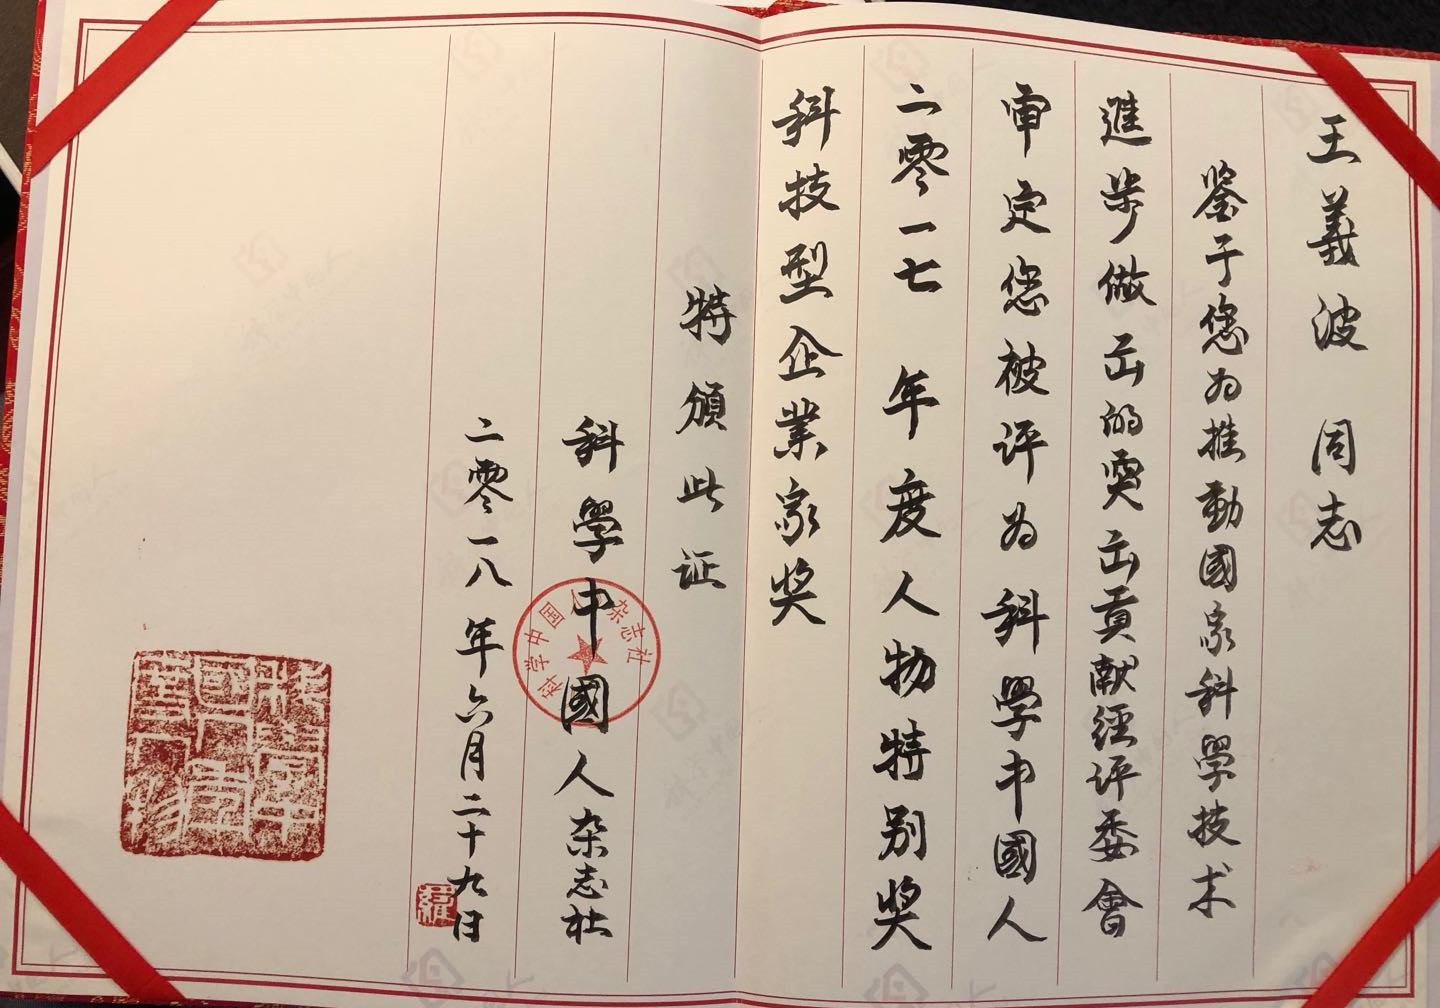 王義波 同志
鉴于您为推動國家科學技术
進步做出的突出貢献經评委會
审定您被评为科學中國人
二零一七 年度人物特别奖
科技型企業家奖
特頒此证
科學中國人杂志社
二零一八年六月二十九日
科学中国人杂志社
羅